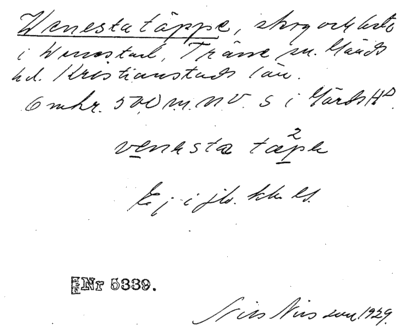 Wenestatäppe, skog och bete
i Wenestad, Träne sn. Gärds
hd. Kristianstads län.
6 mkr. 500 m. NV. S i Gärds Hd
venesta täpe
2
Ej i jb. el.
Nr 5339.
Nils Nilsson 1929.